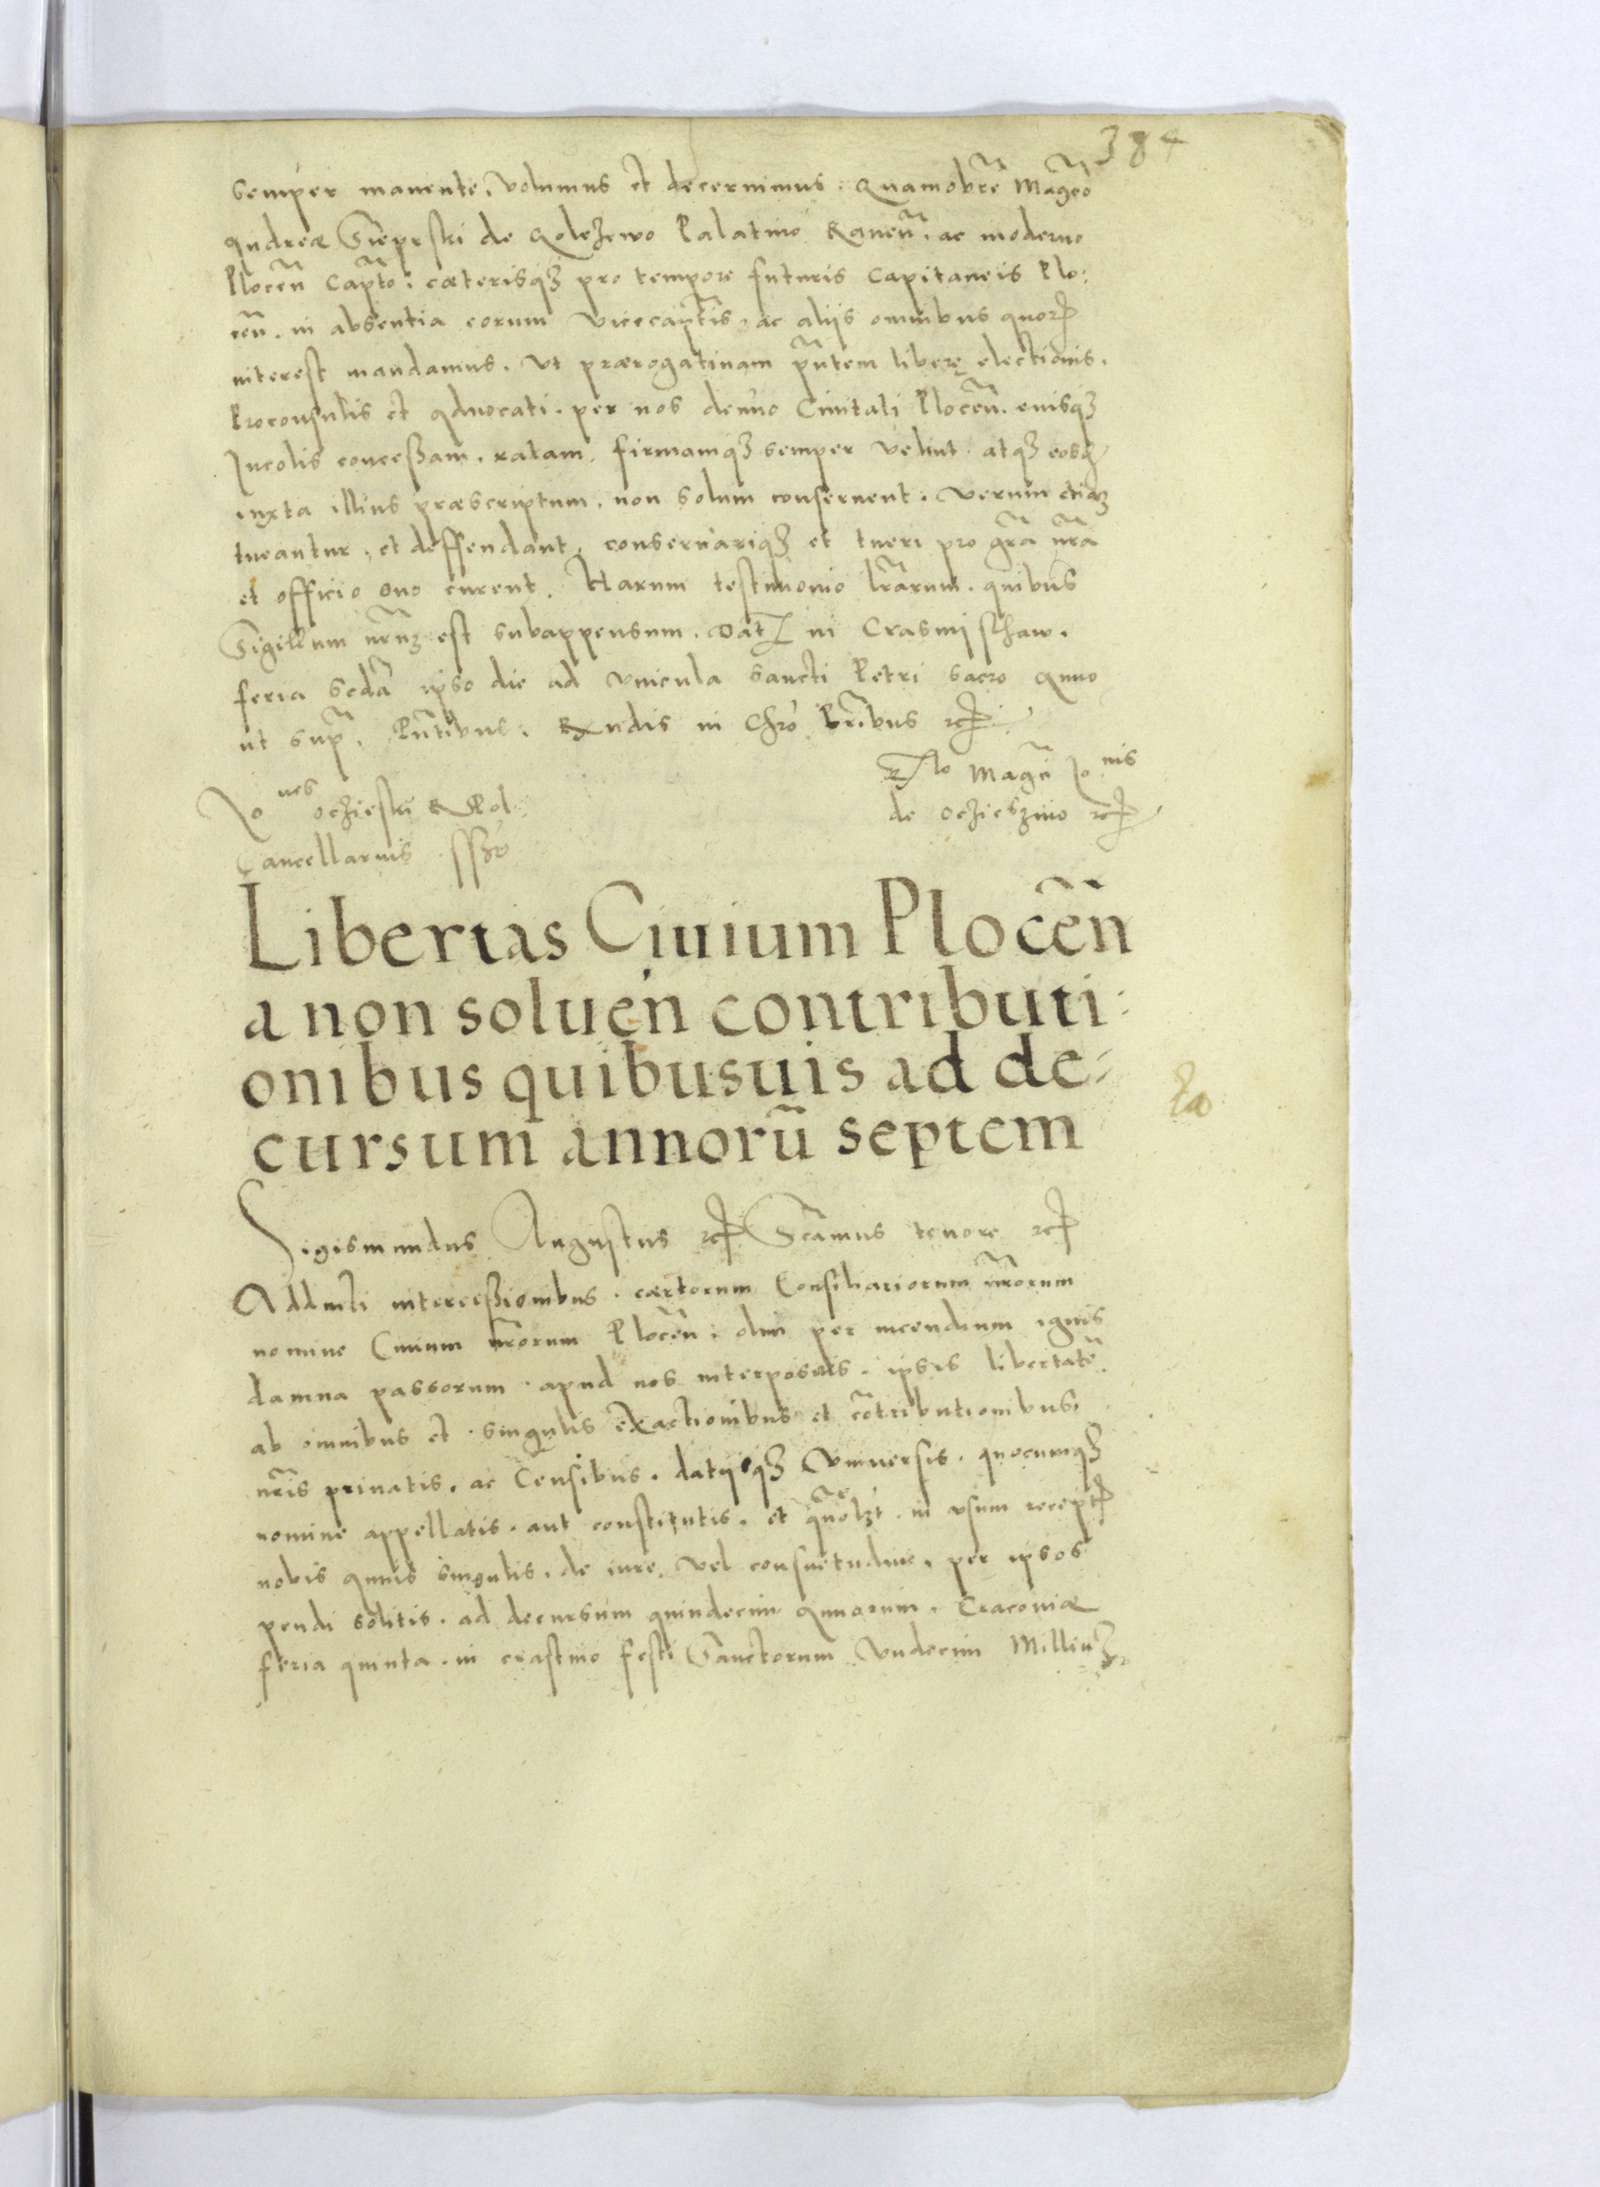 384
semper manente, volumus et decernimus. Quamobrē Mag̃co
Andreæ Sieprski de Golczewo Palatino Raueñ, ac moderno
Ploceñ Capto: cæterisq3 pro tempore futuris Capitaneis Plo:
ceñ. in absentia eorum Vicecaptis, ac aliis omnibus quor
interest mandamus. Ut prærogatiuam pñtem liberę electionis.
Proconsulis et Aduocati. per nos denuo Ciuitati Ploceñ. euisq3
Incolis conceßam, ratam, firmamq3 semper velint atq3 eosq3
iuxta illius præscriptum, non solum conseruent. verum etiaz
tueantur, et deffendant, conseruariq3 et tueri pro grã nrã
et officio suo curent. Harum testimonio lrarum. quibus
Sigillum nrm̃ est subappensum. Dat in Crasnijschaw.
feria scdã ipso die ad vincula sancti Petri sacro Anno
ut supª. Pñtibus. Rxndis in Chrõ Pribus etc
Jo nes oczieski R Pol.
Cancellarius sszt
Rlo Magci Jo nis
de oczieszino etc
Libertas Ciuium Plocẽñ
a non soluen contributi:
onibus quibusuis ad de-
cursum annorũ septem
Sigismundus Augustus etc Significamus tenore etc
Adducti interceßionibus. cærtorum Consiliariorum nrorum
nomine Ciuium nrorum Plocẽn: olim per incendium ignis
damna passorum. apud nos interpositis. ipsis libertatẽ
ab omnibus et singulis exactionibus et cõtributionibus
nris priuatis. ac Censibus. datijsq3 Vniuersis. quocumq3
nomine appellatis. aut constitutis. et quõlzt in vsum recept
nobis Annis singulis. de iure, vel consuetudine, per ipsos
pendi solitis. ad decursum quindecim Annorum. Cracouiæ
feria quinta. in crastino festi Sanctorum Vndecim Milliuz